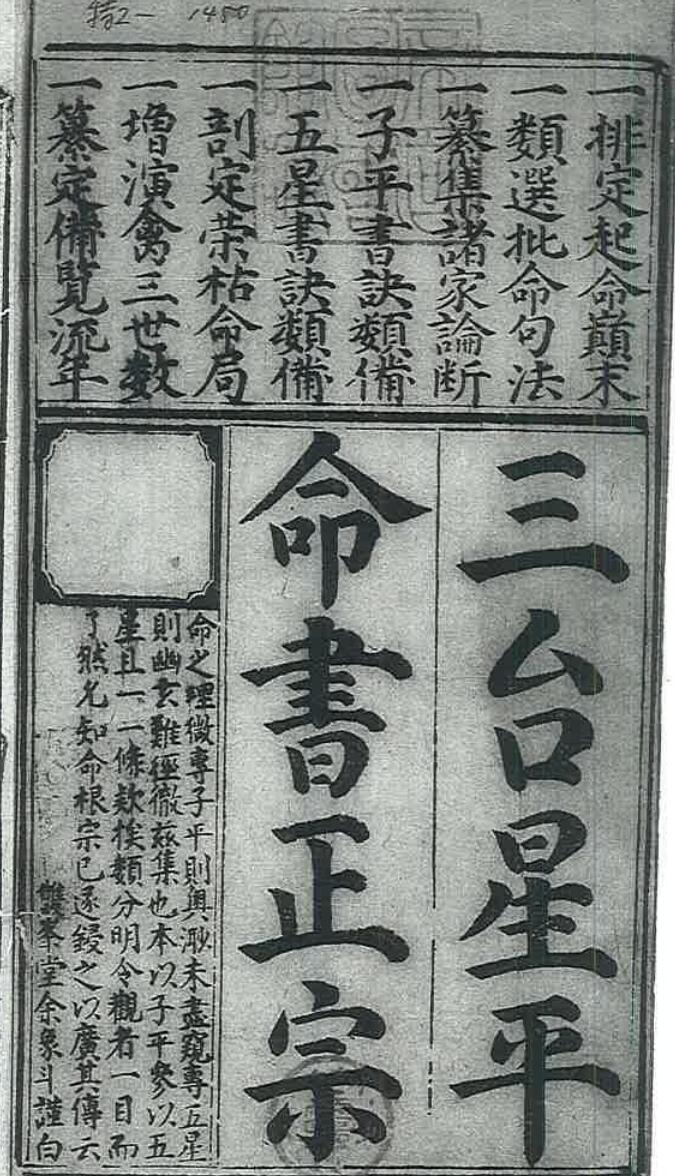 特2- 1480
一排定起命巔末
一類選批命句法
一纂集諸家論断
一子平書訣類備
一五星書訣類備
一剖定荣枯命局
一增演禽三世数
一纂定備覽流年
三台星平
命書正宗
命之理微專子平則輿渺未盡窺專五星
則幽玄難徑徹玆集也本以子平參以五
星且一一條欵挨類分明令觀者一目而
了然允知命根宗已遂鋟之以廣其傳云
雙峯堂余象斗謹白